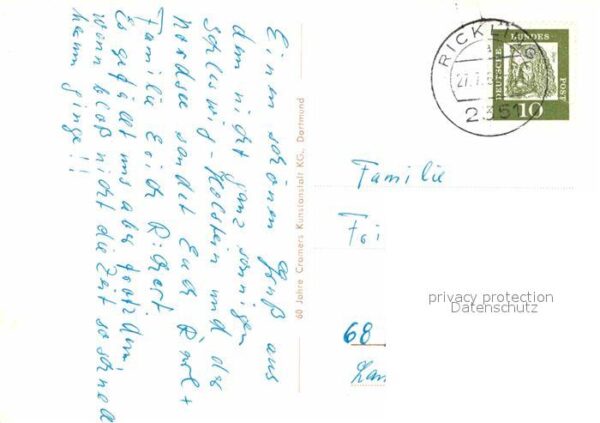 Einen schönen Gruß aus
dem nicht ganz sonnigen
Schleswig-Holstein und der
Nordsee sendet Euch +
Familie Erich
Es gefällt uns aber trotzdem,
wenn bloß nicht die Zeit so schnell
herum ginge!!
60 Jahre Cramers Kunstanstalt KG., Dortmund
RICKLING
27.7.
2351
DEUTSCHE BUNDESPOST
10
Familie
68
privacy protection
Datenschutz